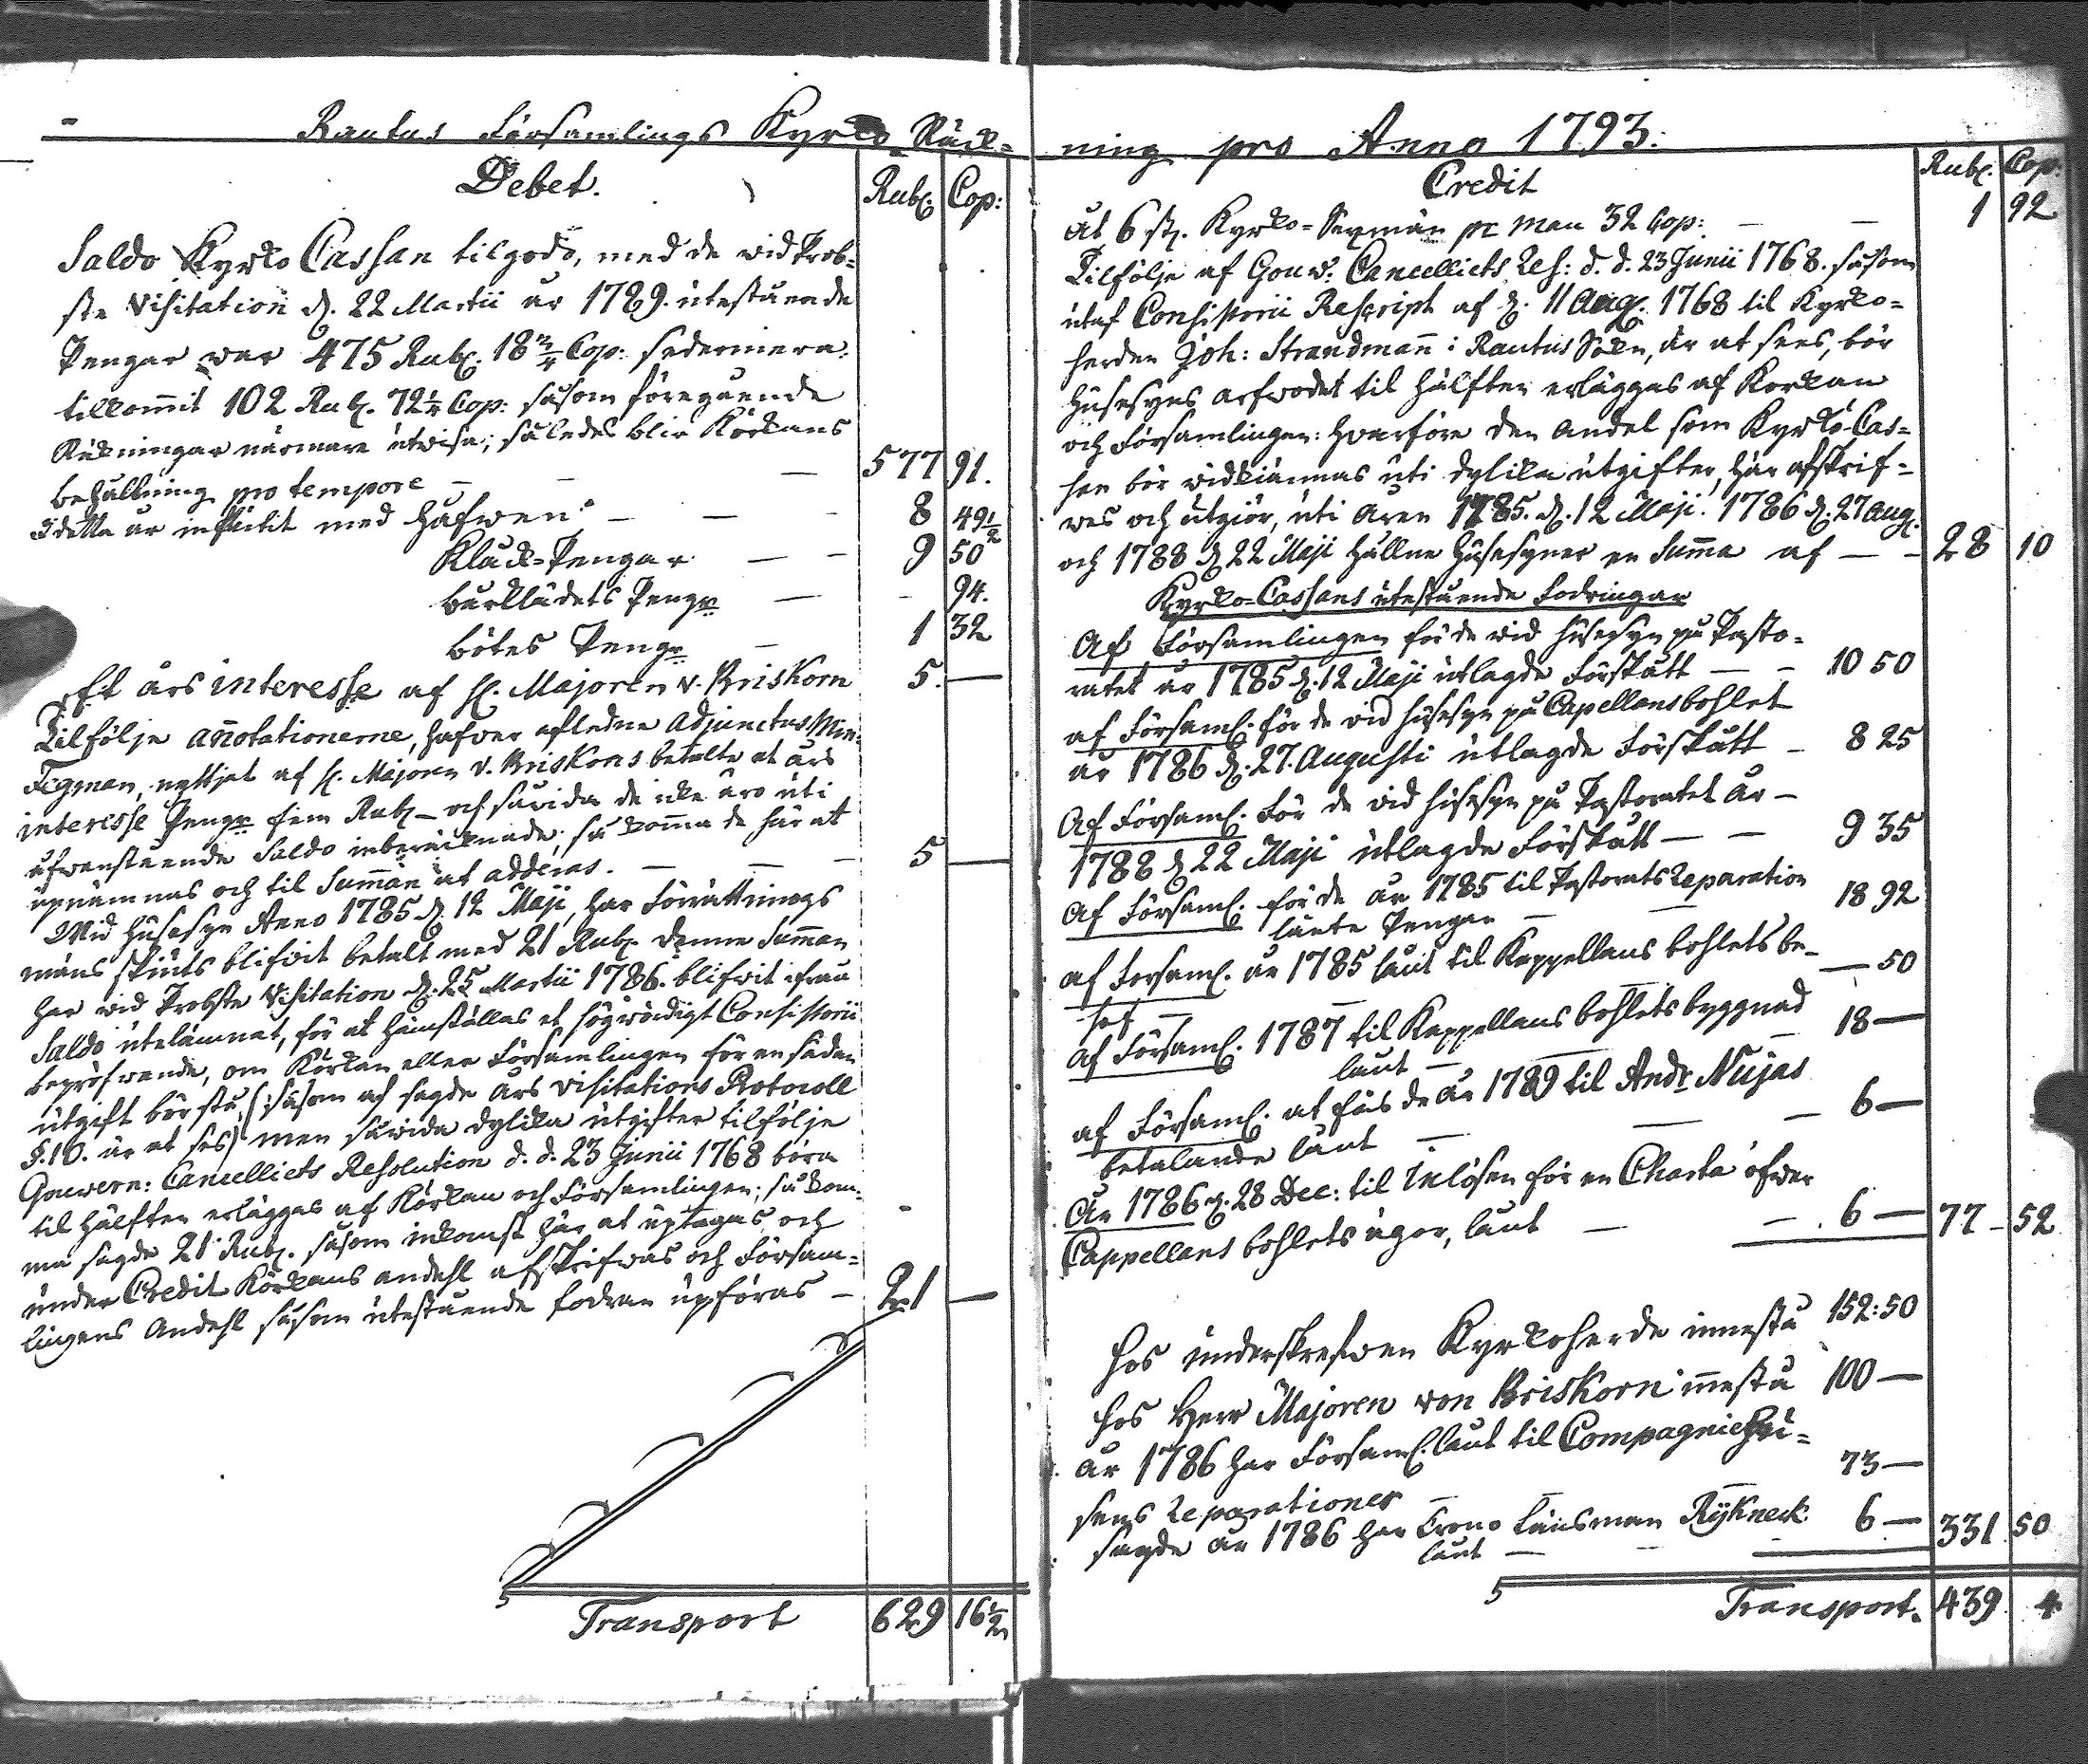 Rautus Församlings Kyrko Räck=
Debet.
Rubl. Cop:
Saldo Kyrko Cassan tilgodo, med de wid Prob=
ste Visitation d. 22 Martii år 1789. utestående
Pengar war 475 Rubl. 18 3/4 Cop: sedermera
tilkommit 102 Rubl. 72 1/4 Cop: såsom föregående
Räkningar närmare utwisa; således blir Körkans
behållning pro tempore — — — 577 91.
I detta år influtit med Håfwen — — 8 49 1/2
Klåck=Pengar — — 9 50
Bårklädets Pengr — - 94.
Bötes Pengr — 1 32
Ett års interesse af H. Majoren v. Briskorn 5. —
Tilfölje annotationerne, hafwer afledne Adjunctus Min:
Tegman, nyttjat af H. Majoren v. Briskorns betalte et års
interesse Pengr fem Rubl — och såwida de icke äro uti
ofwanstående Saldo inberäcknade; så komma de här at
upnämnas och til Summan at adderas. — — — 5 —
Wid Husesyn Anno 1785 d. 12 Maji, har Förrättnings
mäns skiuts blifwit betalt med 21 Rubl. denne Summan
har wid Probste Visitation d. 25 Martii 1786. blifwit ifrån
Saldo utelämnat, för at hämställas et högwördigt Consistorii
bepröfwande, om Körkan eller Församlingen för en sådan
utgift bör stå, (:såsom af sagde års Visitations Protocoll
§.10. är at ses) men såwida dylika utgifter tilfölje
Gouvern: Cancelliets Resolution d. d. 23 Junii 1768 böra
til hälften erläggas af Körkan och Församlingen; så kom=
ma sagde 21 Rubl. såsom inkomst här at uptagas, och
under Credit Körkans andehl afskrifwas och Försam=
lingens Andehl såsom utestående fodran upföras — 21 —
Transport 629 16 1/2
ning pro Anno 1793.
Credit
Rubl. Cop:
Åt 6 st. Kyrko=Sexmän pr man 32 Cop: — — 1 92
Tilfölje af Gouv: Cancelliets Res: d. d. 23 Junii 1768. såsom
utaf Consistorii Rescript af d. 11 Aug. 1768 til Kyrko=
herden Joh: Strandman i Rautus Sokn, är at sees, bör
Husesyns arfwodet til hälften erläggas af Körkan
och Församlingen: hwarföre den andel som Kyrko=Cas=
san bör widkiännas uti dylika utgifter, här afskrif=
wes och utgiör, uti åren 1785. d. 12 Maji. 1786 d. 27 Aug.
och 1788 d. 22 Maji hållne Husesyner en Summa af — — 28 10
Kyrko=Cassans utestående Fodringar
Af Församlingen för de wid husesyn på Pasto=
ratet år 1785 d. 12 Maji utlagde Förskått — — 10 50
af Församl. för de wid husesyn på Capellansbohlet
år 1786 d. 27. Augusti utlagde Förskått — 8 25
Af Församl. för de wid husesyn på Pastoratet år —
1788 d. 22 Maji utlagde Förskått — — 9 35
Af Församl. för de år 1785 til Pastorats Reparation
lånte Pengar — — 18 92
af Forsaml. år 1785 lånt til Kappellans bohlets be=
hof — — — — 50
af Församl. 1787 til Kappellans bohlets byggnad
lånt — — — 18 —
af Församl. at fås de år 1789 til Andr Nujas
betalande lånt — — — 6 —
År 1786 d. 28 Dec: til Inlösen för en Charta öfwer
Cappellans bohlets ägor, lånt — — 6 — 77 - 52
Hos underskrefwen Kyrkoherde innestå 152:50
Hos Herr Majoren von Briskorn innestå 100 —
År 1786 har Församl. lånt til Compagniehu=
sens Reparationer — — — 73 —
Sagde år 1786 har Crono Länsman Rÿkneck 6 — 331 50
lånt — - -
Transport. 439 4